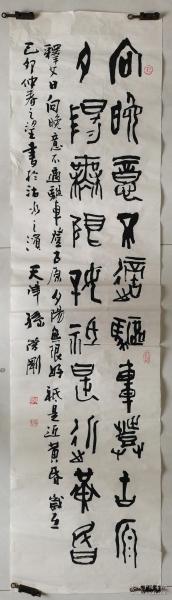 向晚意不適驅車登古原
夕陽無限好祇是近黃昏
釋文曰向晚意不適驅車登古原夕陽無限好祇是近黄昏歲在
己卯仲春之望書於沽水之濱 天津孫